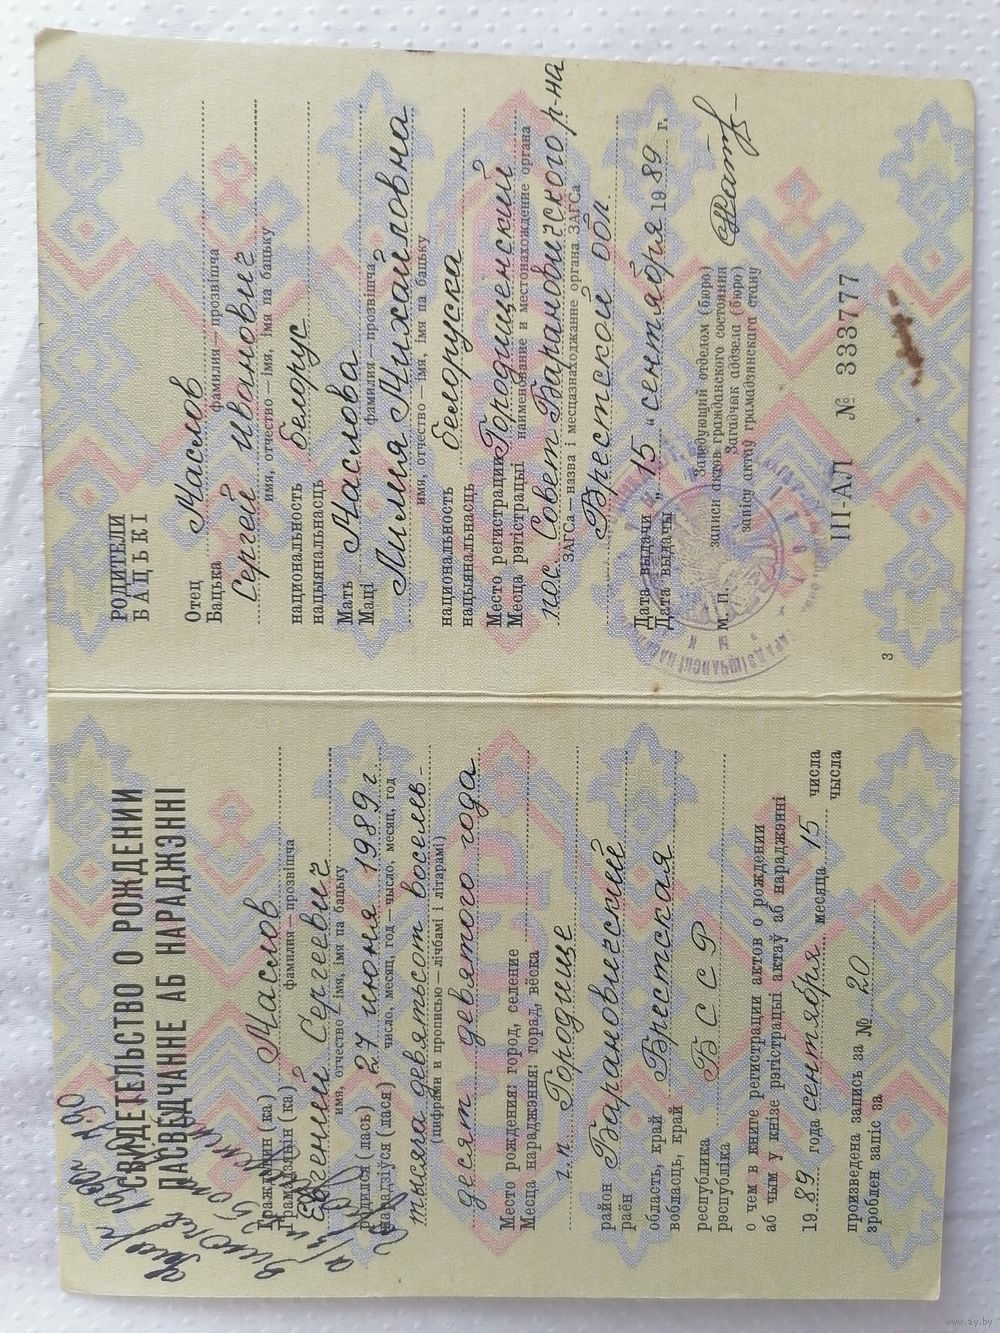 СВИДЕТЕЛЬСТВО О РОЖДЕНИИ
ПАСВЕДЧАННЕ АБ НАРАДЖЭННІ
Гражданин (ка) Маслов
Грамадзянін (ка) фамилия — прозвішча
Евгений Сергеевич
имя, отчество — імя, імя па бацьку
родился (лась) 27 июня 1989 г.
нарадзіўся (лася) число, месяц, год — чысло, месяц, год
тысяча девятьсот восемь-
(цифрами и прописью — лічбамі і літарамі)
десят девятого года
Место рождения: город, селение
Месца нараджэння: горад, вёска
г.п. Городище
район Барановичский
раён
область, край Брестская
вобласць, край
республика БССР
рэспубліка
о чем в книге регистрации актов о рождении
аб чым у кнізе рэгістрацыі актаў аб нараджэнні
1989 года сентября месяца 15 числа
чысла
произведена запись за № 20
зроблен запіс за
РОДИТЕЛИ
БАЦЬКІ
Отец Маслов
Бацька фамилия — прозвішча
Сергей Иванович
имя, отчество — імя, імя па бацьку
национальность белорус
нацыянальнасць
Мать Маслова
Маці фамилия — прозвішча
Лилия Михайловна
имя, отчество — імя, імя па бацьку
национальность белоруска
нацыянальнасць
Место регистрации Городищенский
Месца рэгістрацыі наименование и местонахождение органа
пос. Совет Барановичского р-на
ЗАГСа — назва і месцазнаходжанне органа ЗАГСа
Брестской обл.
Дата выдачи „15" сентября 1989 г.
Дата выдачы
Заведующий отделом (бюро)
м. п. записи актов гражданского состояния
Загадчык аддзела (бюро)
запісу актаў грамадзянскага стану
III-АЛ № 333777
3
www.ay.by